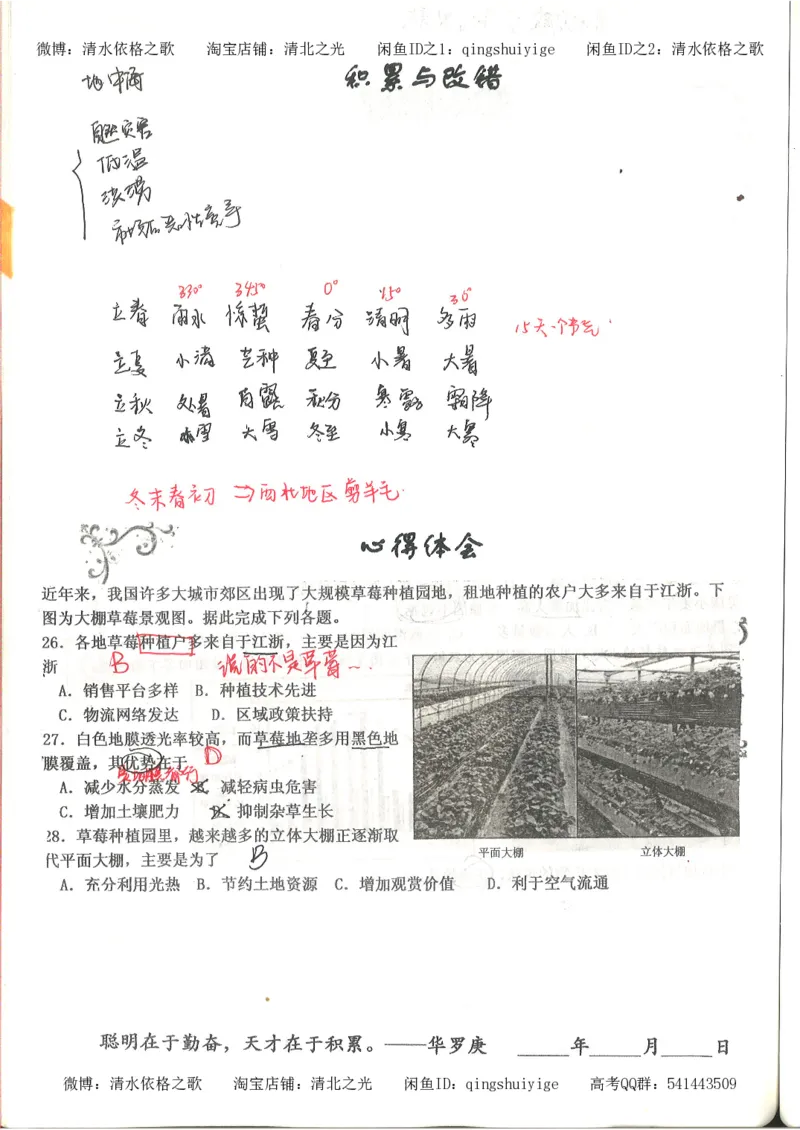 微博：清水依格之歌 淘宝店铺：清北之光 闲鱼ID之1：qingshuiyige 闲鱼ID之2：清水依格之歌
积累与改错
自然灾害
低温
330° 345° 0° 15° 30°
立春 雨水 惊蛰 春分 清明 谷雨
15天一个节气
立夏 小满 芒种 夏至 小暑 大暑
立秋 处暑 白露 秋分 寒露 霜降
立冬 小雪 大雪 冬至 小寒 大寒
冬末春初 ⇒西北地区剪羊毛
心得体会
近年来，我国许多大城市郊区出现了大规模草莓种植园地，租地种植的农户大多来自于江浙。下
图为大棚草莓景观图。据此完成下列各题。
26．各地草莓种植户多来自于江浙，主要是因为江
浙 B 说的不是草莓...
A．销售平台多样 B．种植技术先进
C．物流网络发达 D．区域政策扶持
27．白色地膜透光率较高，而草莓地垄多用黑色地
膜覆盖，其优势在于 D
A．减少水分蒸发 B．减轻病虫危害
C．增加土壤肥力 D．抑制杂草生长
28．草莓种植园里，越来越多的立体大棚正逐渐取
代平面大棚，主要是为了 B
A．充分利用光热 B．节约土地资源 C．增加观赏价值 D．利于空气流通
平面大棚 立体大棚
聪明在于勤奋，天才在于积累。——华罗庚 ____年____月____日
微博：清水依格之歌 淘宝店铺：清北之光 闲鱼ID：qingshuiyige 高考QQ群：541443509